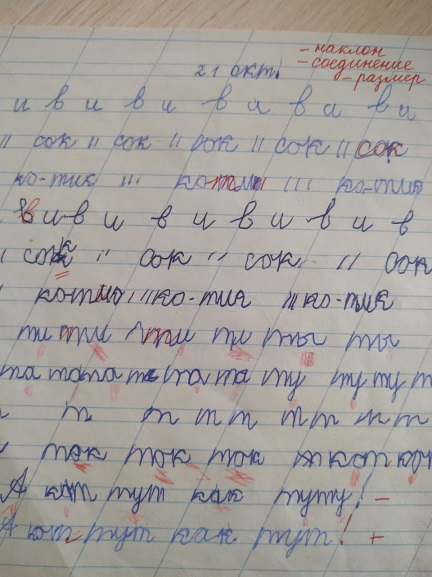 - наклон
- соединение
- размер
21 окт.
и в и в и в и в и в и
" сок " сок " сок " сок " сок
ко-тик ''' котик ''' ко-тик
в и в и в и в и в и в
" сок " сок " сок " сок
котик ''' ко-тик ''' ко-тик
ти ти ти ти ты ты
та та та та та та ту ту ту т
т т т т т т т т
ток ток ток кот кот
А кот тут как тут! -
А кот тут как тут! +